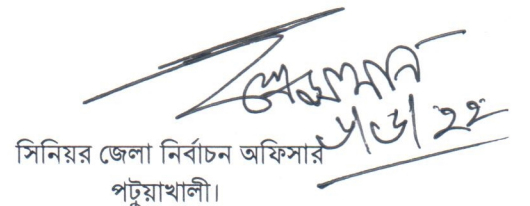 ৬/৬/২২
সিনিয়র জেলা নির্বাচন অফিসার
পটুয়াখালী।